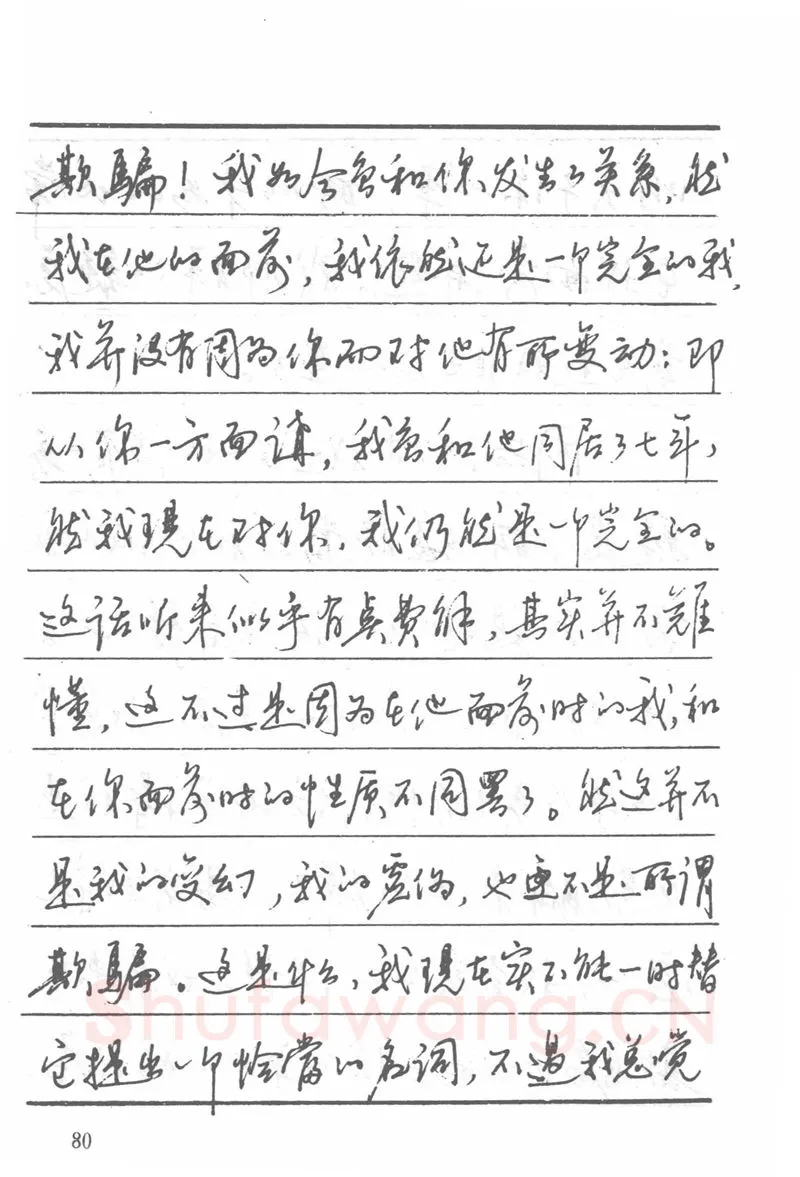 欺骗！我如今曾和你发生了关系，然
我在他的面前，我依然还是一个完全的我，
我并没有因为你而对他有所变动；即
从你一方面讲，我曾和他同居了七年，
然我现在对你，我仍然是一个完全的。
这话听来似乎有点费解，其实并不难
懂，这不过是因为在他面前时的我，和
在你面前时的性质不同罢了。然这并不
是我的变幻，我的虚伪，也更不是所谓
欺骗。这是什么，我现在实不能一时替
它提出一个恰当的名词，不过我总觉
Shufawang.CN
80